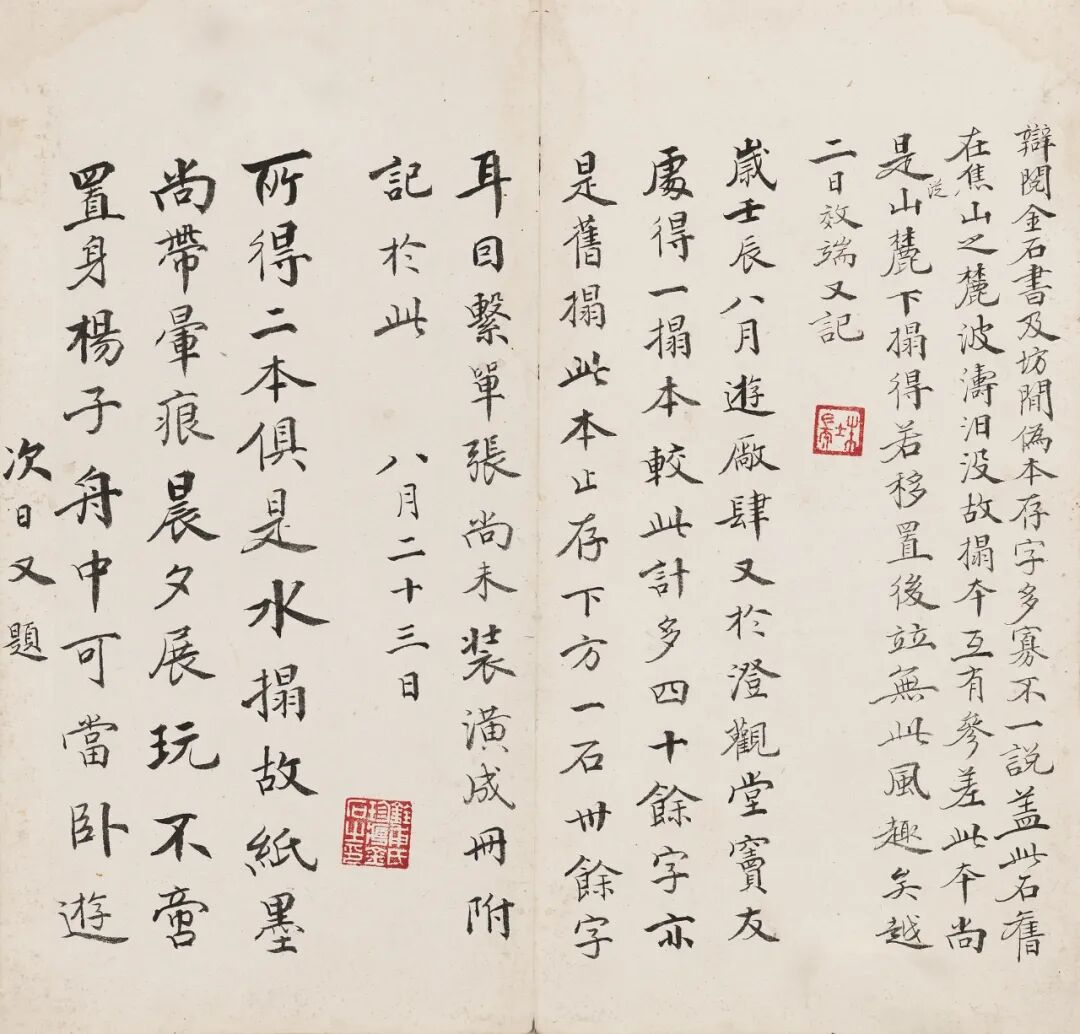 辯閱金石書及坊間偽本存字多寡不一說蓋此石舊
在焦山之麓波濤汨没故搨本互有參差此本尚
是從山麓下搨得若移置後竝無此風趣矣越
二日效端又記
歲壬辰八月遊廠肆又於澄觀堂竇友
處得一搨本較此計多四十餘字亦
是舊搨此本止存下方一石卅餘字
耳因繫單張尚未裝潢成冊附
記於此 八月二十三日
所得二本俱是水搨故紙墨
尚帶暈痕晨夕展玩不啻
置身楊子舟中可當卧遊
次日又題